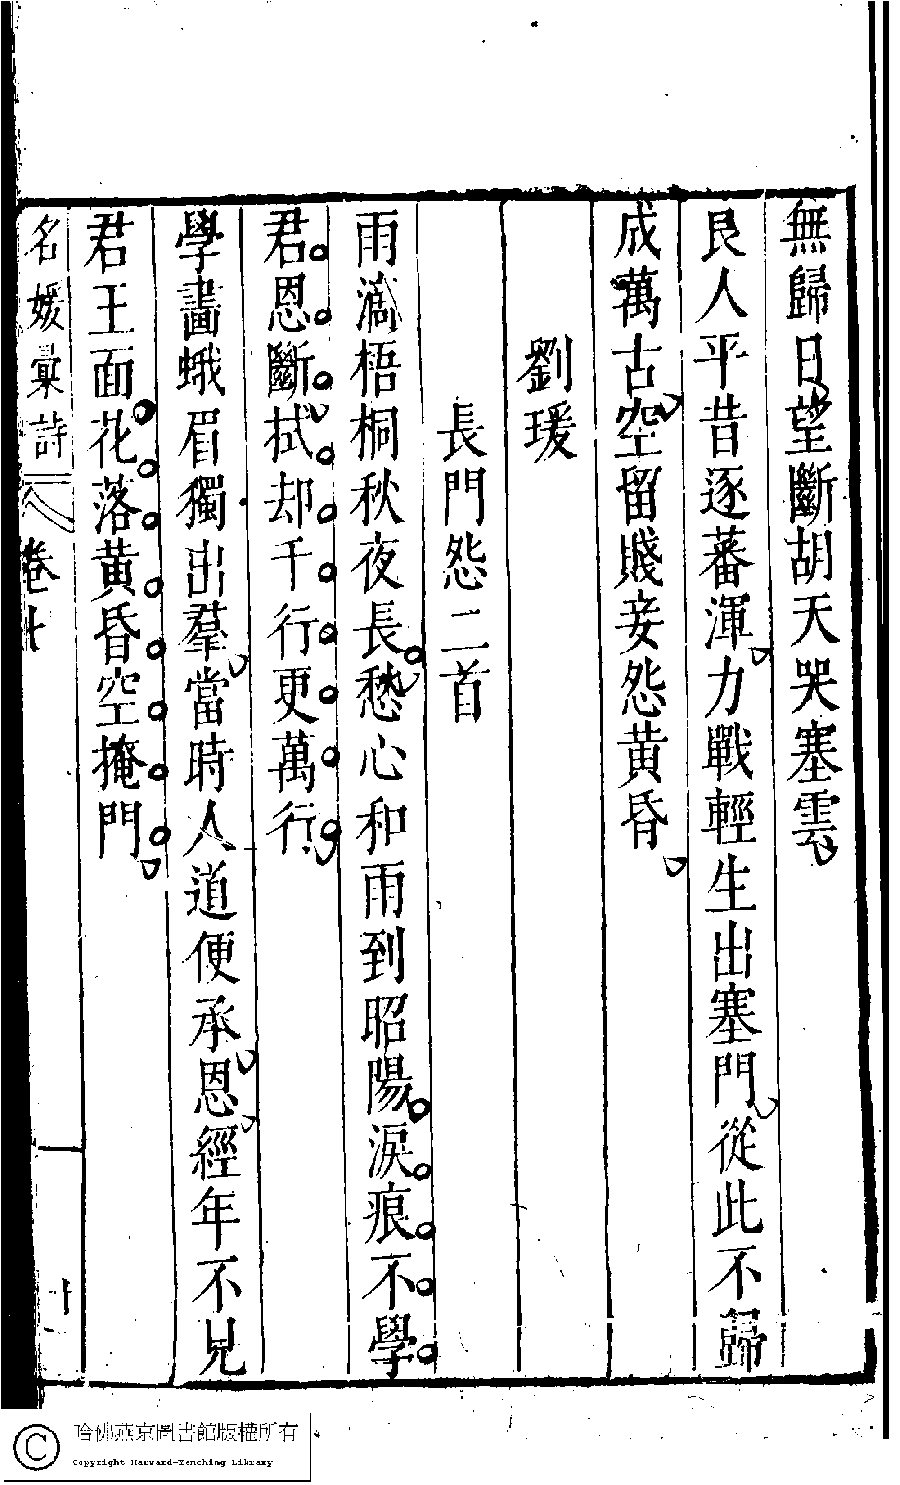 無歸日望斷胡天哭塞雲
良人平昔逐蕃渾力戰輕生出塞門從此不歸
成萬古空留賤妾怨黃昏
劉瑗
長門怨二首
雨滴梧桐秋夜長愁心和雨到昭陽淚痕不學
君恩斷拭却千行更萬行
學畫蛾眉獨出羣當時人道便承恩經年不見
君王面花落黃昏空掩門
名媛彙詩
卷十
十一
哈佛燕京圖書館版權所有
Copyright Harvard-Yenching Library